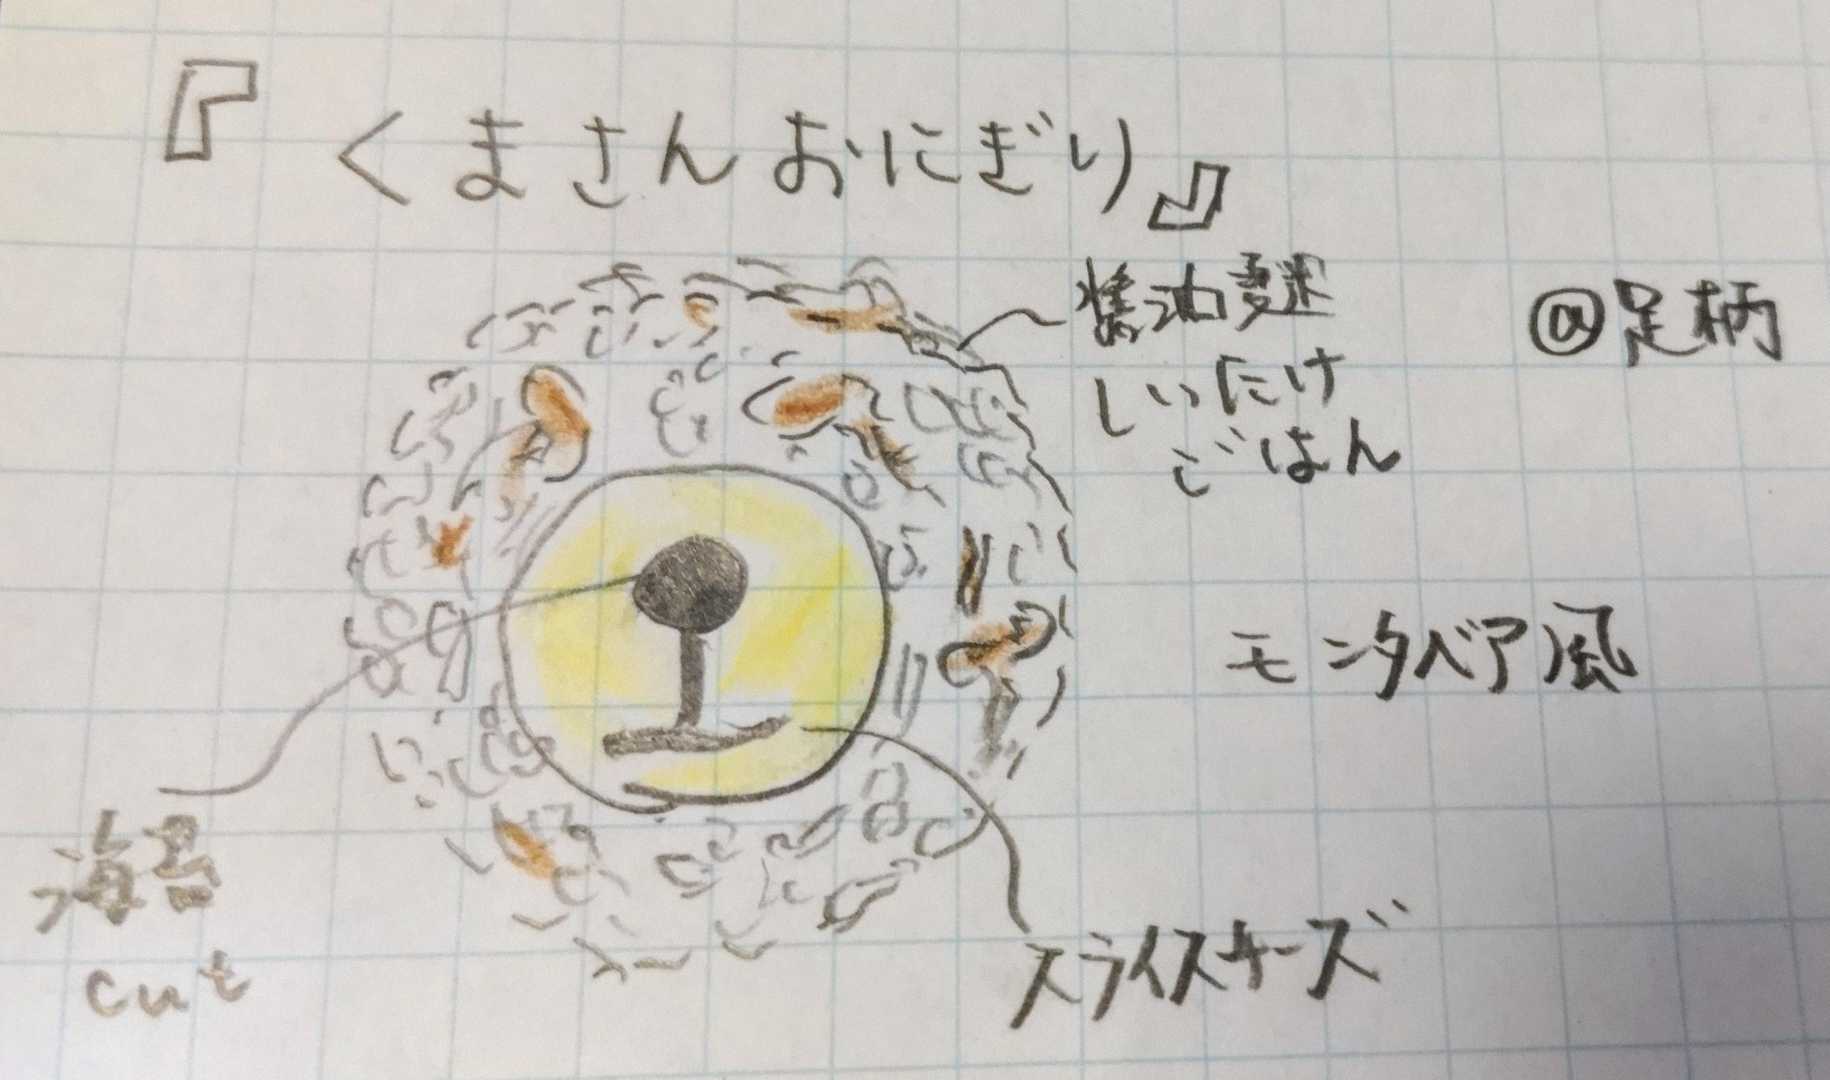 『くまさんおにぎり』
醤油麹
しいたけ
ごはん
@足柄
モンタベア風
海苔
cut
スライスチーズ